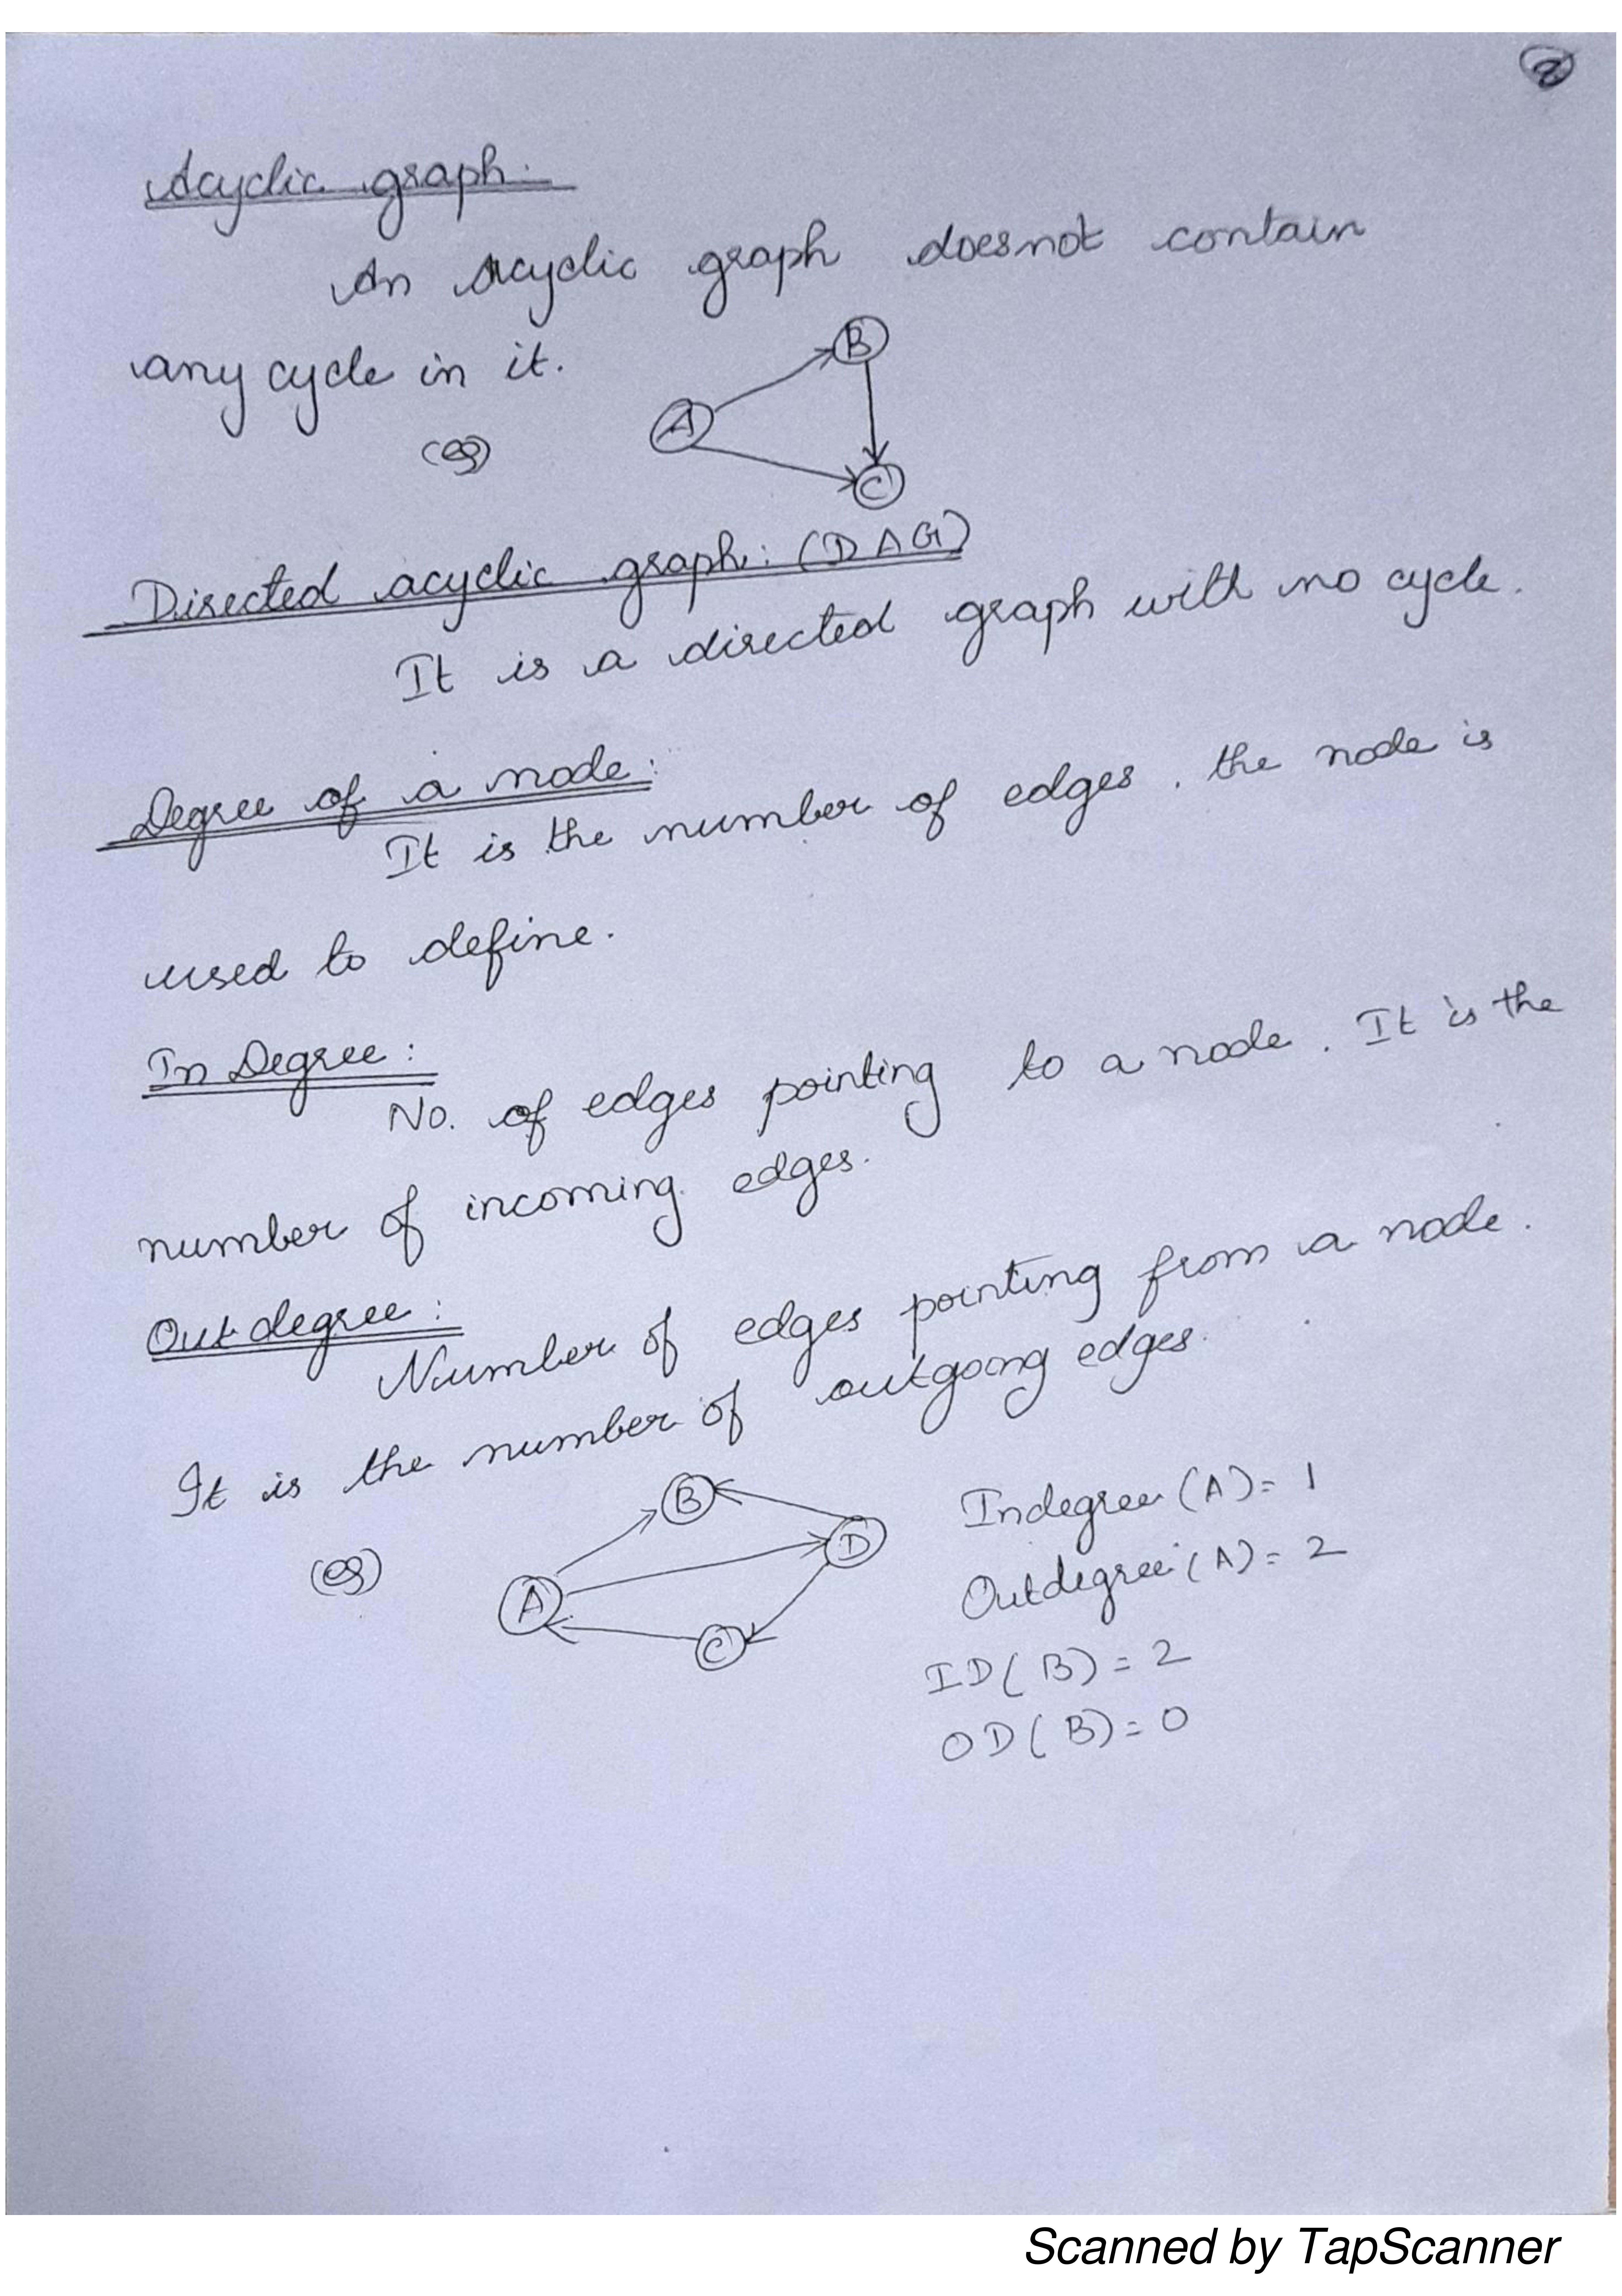 2
Acyclic graph:
An Acyclic graph doesnot contain
any cycle in it.
(eg)
B
A
C
Directed acyclic graph: (DAG)
It is a directed graph with no cycle.
Degree of a node:
It is the number of edges, the node is
used to define.
In Degree:
No. of edges pointing to a node. It is the
number of incoming edges.
Outdegree:
Number of edges pointing from a node.
It is the number of outgoing edges.
(eg)
B
D
A
C
Indegree (A) = 1
Outdegree (A) = 2
ID(B) = 2
OD(B) = 0
Scanned by TapScanner